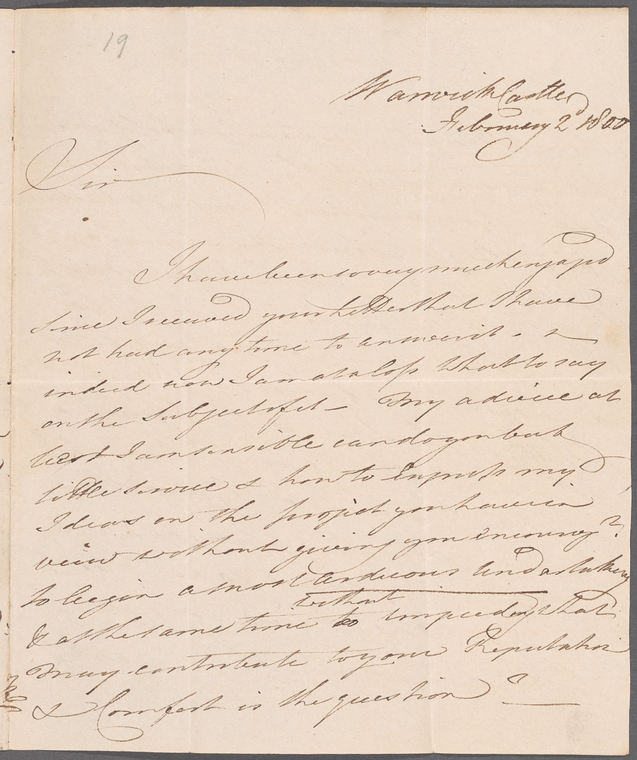 19
Warwick Castle
February 2d 1800
Sir
I have been so very much engag'd
since I received your Letter that I have
not had any time to answer it - &
indeed now I am at a loss what to say
on the Subject of it - My advice at
best I am sensible can do you but
little service & how to express my
Ideas on the project you have in
view without giving you encourag.t
to begin a most arduous Undertaking
& at the same time without impeding that
may contribute to your Reputation
& Comfort is the question